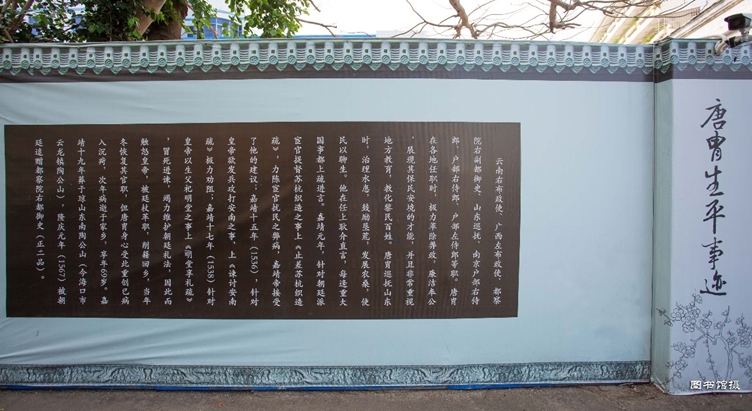 唐胄生平事迹
云南右布政使、广西左布政使、都察
院右副都御史、山东巡抚、南京户部右侍
郎、户部右侍郎、户部左侍郎等职。唐胄
在各地任职时，极力革除弊政，廉洁奉公
，展现其保民安境的才能，并且非常重视
地方教育，教化黎民百姓。唐胄巡抚山东
时，治理水患，鼓励垦荒，发展农桑，使
民以聊生。他在任上耿介直言，每逢重大
国事都上疏进言。嘉靖元年，针对朝廷派
宦官提督苏杭织造之事上《止差苏杭织造
疏》，力陈宦官扰民之弊病，嘉靖帝接受
了他的建议；嘉靖十五年（1536），针对
皇帝欲发兵攻打安南之事，上《谏讨安南
疏》极力劝阻；嘉靖十七年（1538）针对
皇帝以生父祀明堂之事上《明堂享礼疏》
，冒死进谏，竭力维护朝廷礼法，因此而
触怒皇帝，被廷杖革职，削籍回乡，当年
冬恢复其官职，但唐胄身心受此重创已病
入沉疴，次年病逝于家乡，享年69岁。嘉
靖十九年葬于琼山东南陶公山（今海口市
云龙镇陶公山），隆庆元年（1567）被朝
廷追赠都察院右都御史（正二品）。
图书馆摄